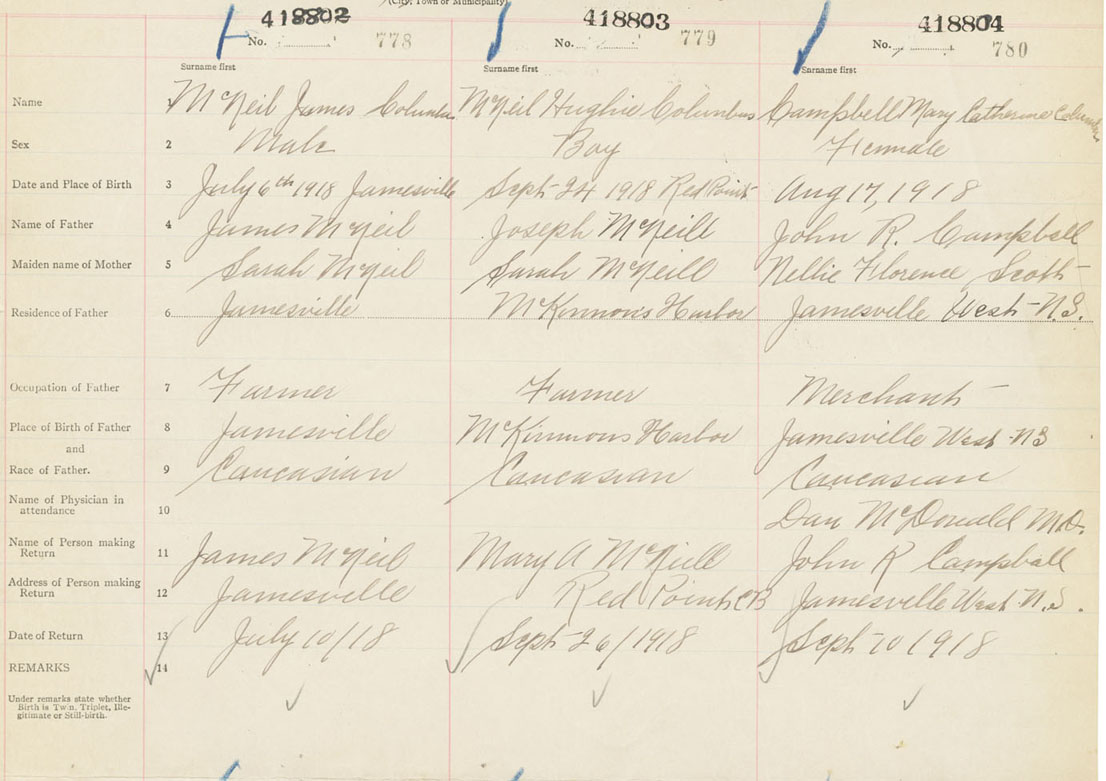 (City, Town or Municipality)
418802 418803 418804
No. 778 No. 779 No. 780
Surname first Surname first Surname first
Name 1 McNeil James Columba McNeil Hughie Columbus Campbell Mary Catherine
Sex 2 Male Boy Female
Date and Place of Birth 3 July 6th 1918 Jamesville Sept 24 1918 Red Point Aug 17, 1918
Name of Father 4 James McNeil Joseph McNeill John R. Campbell
Maiden name of Mother 5 Sarah McNeil Sarah McNeill Nellie Florence Scott
Residence of Father 6 Jamesville McKinnons Harbor Jamesville West N.S.
Occupation of Father 7 Farmer Farmer Merchant
Place of Birth of Father 8 Jamesville McKinnons Harbor Jamesville West NS
and
Race of Father. 9 Caucasian Caucasian Caucasian
Name of Physician in
attendance 10 Dan McDonald M.D.
Name of Person making
Return 11 James McNeil Mary A McNeill John R Campball
Address of Person making
Return 12 Jamesville Red Point CB Jamesville West N.S.
Date of Return 13 July 10/18 Sept 26/1918 Sept 10 1918
REMARKS 14
Under remarks state whether
Birth is Twin, Triplet, Ille-
gitimate or Still-birth.